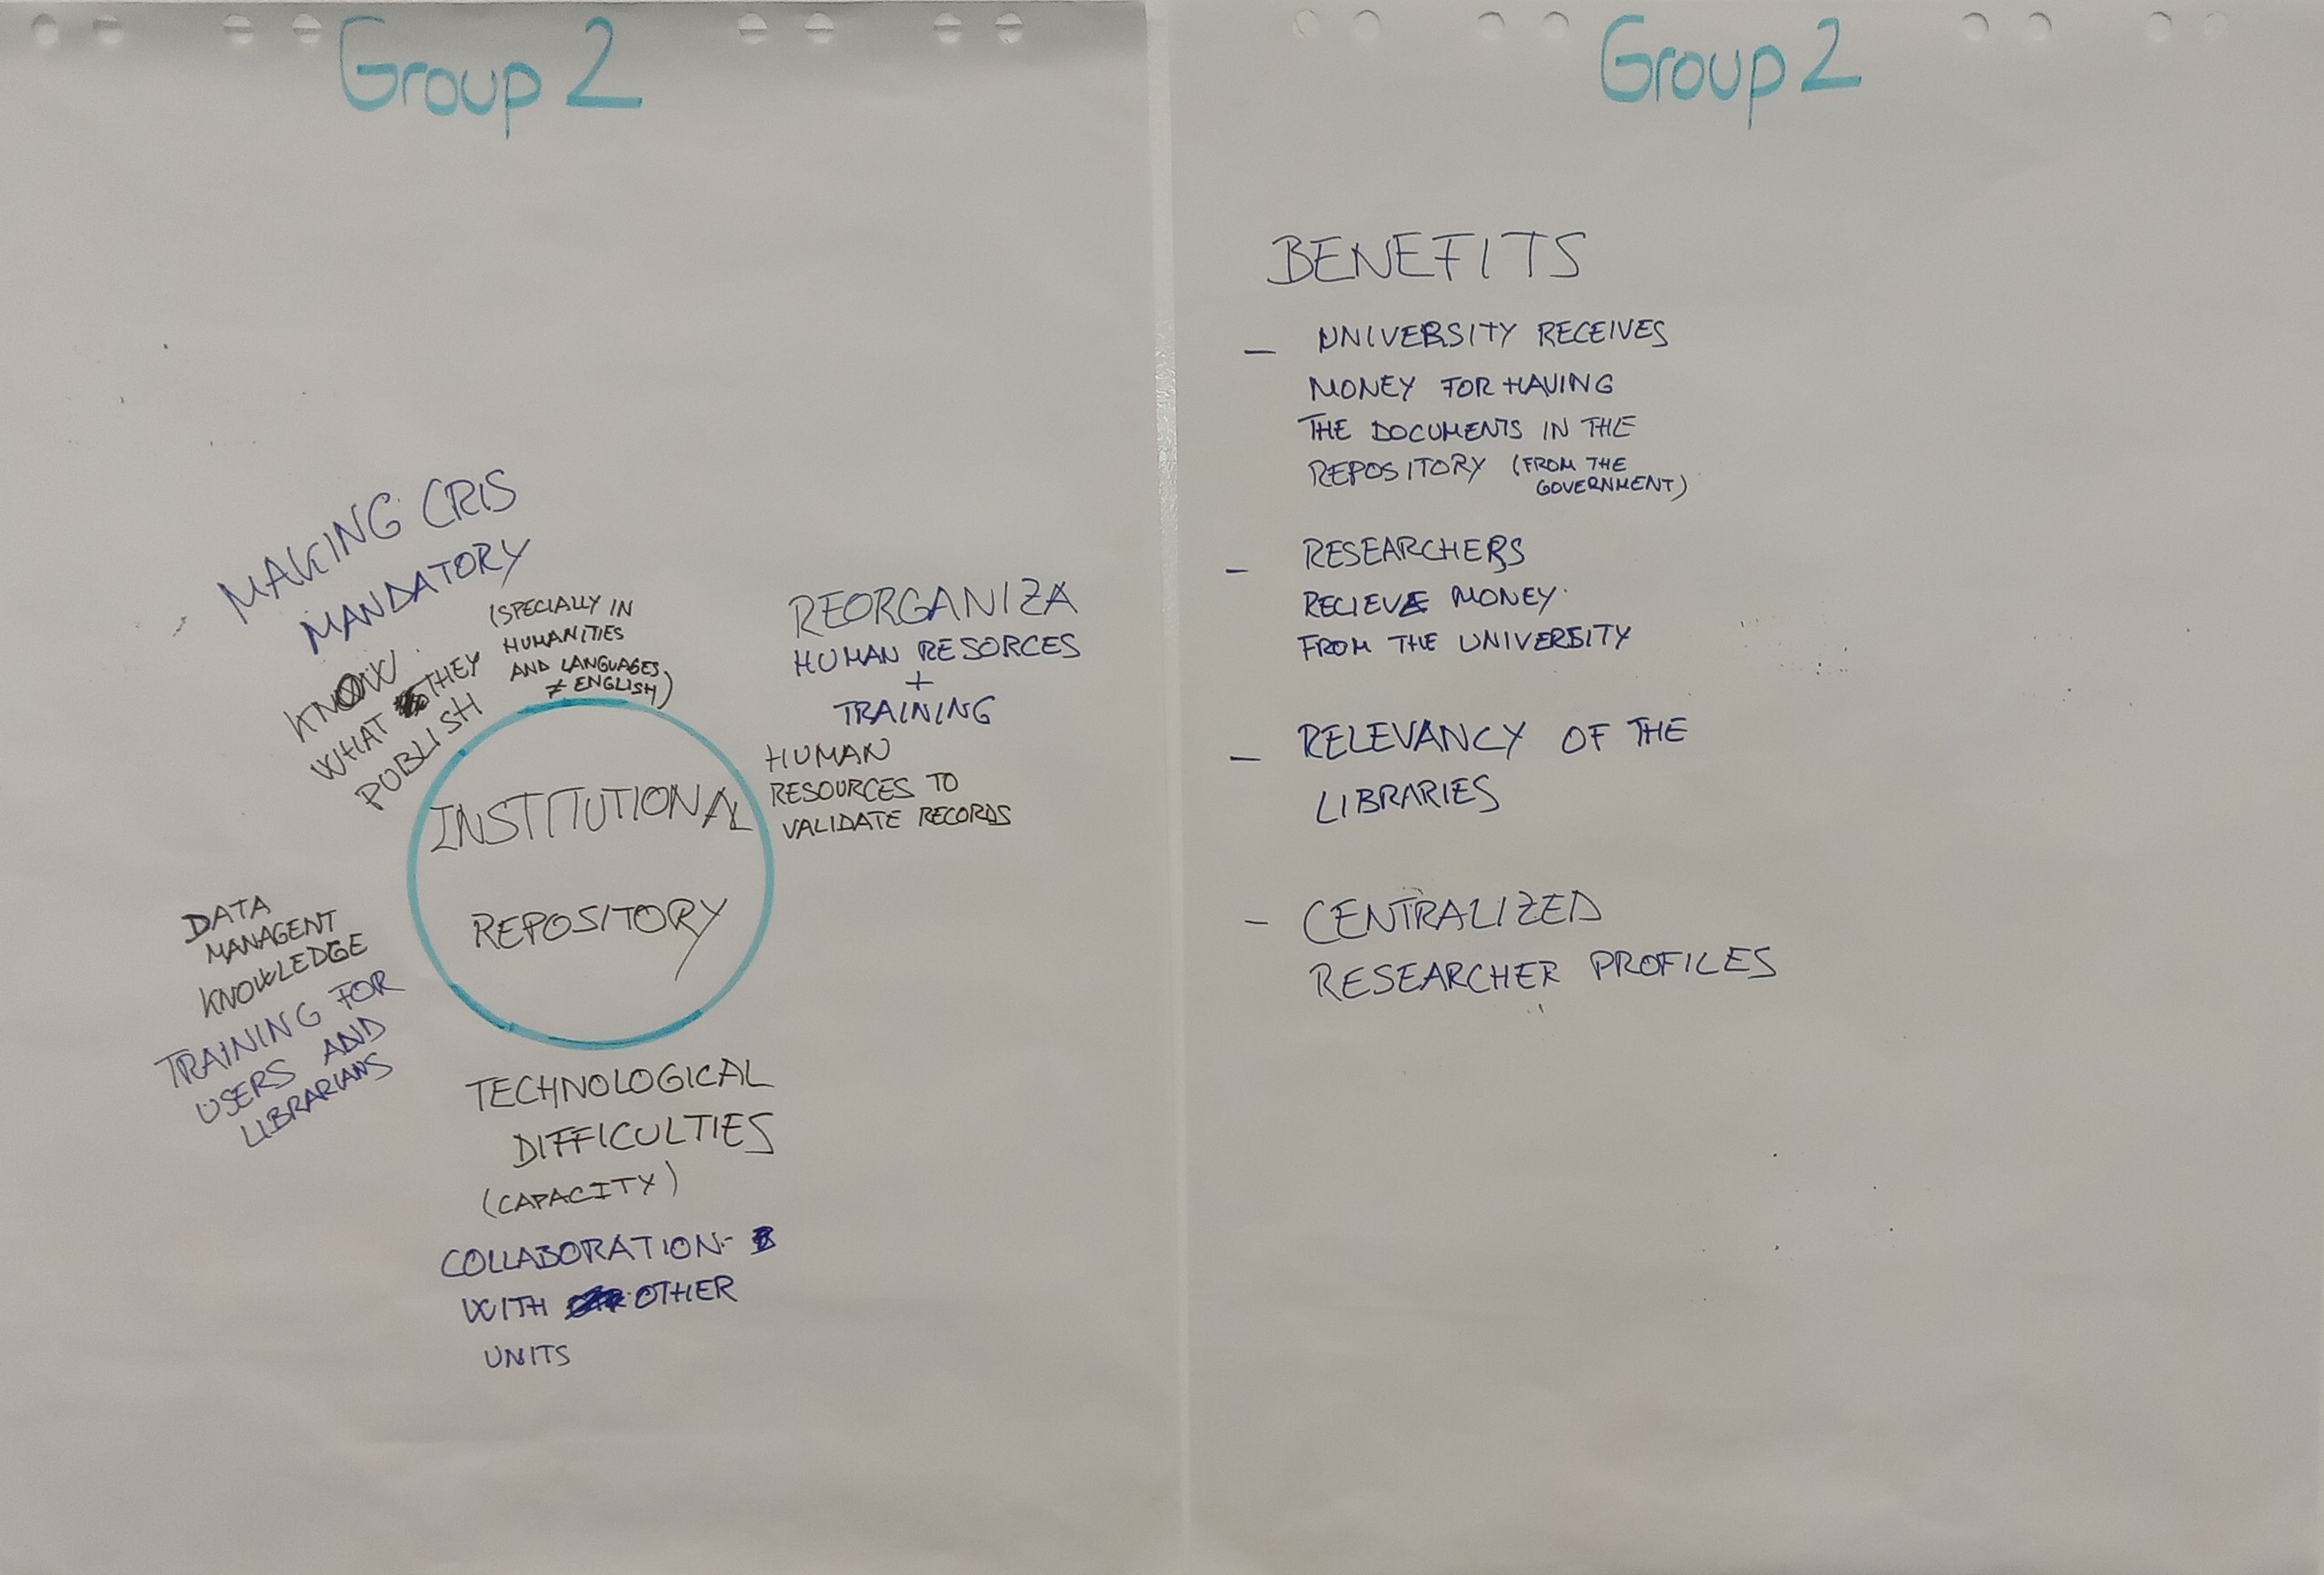 Group 2
MAKING CRIS
MANDATORY
KNOW
WHAT THEY
PUBLISH
(SPECIALLY IN
HUMANITIES
AND LANGUAGES
≠ ENGLISH)
REORGANIZA
HUMAN RESORCES
+
TRAINING
HUMAN
RESOURCES TO
VALIDATE RECORDS
INSTITUTIONAL
REPOSITORY
DATA
MANAGENT
KNOWLEDGE
TRAINING FOR
USERS AND
LIBRARIANS
TECHNOLOGICAL
DIFFICULTIES
(CAPACITY)
COLLABORATION
WITH OTHER
UNITS
Group 2
BENEFITS
- UNIVERSITY RECEIVES
MONEY FOR HAVING
THE DOCUMENTS IN THE
REPOSITORY (FROM THE
GOVERNMENT)
- RESEARCHERS
RECIEVE MONEY
FROM THE UNIVERSITY
- RELEVANCY OF THE
LIBRARIES
- CENTRALIZED
RESEARCHER PROFILES